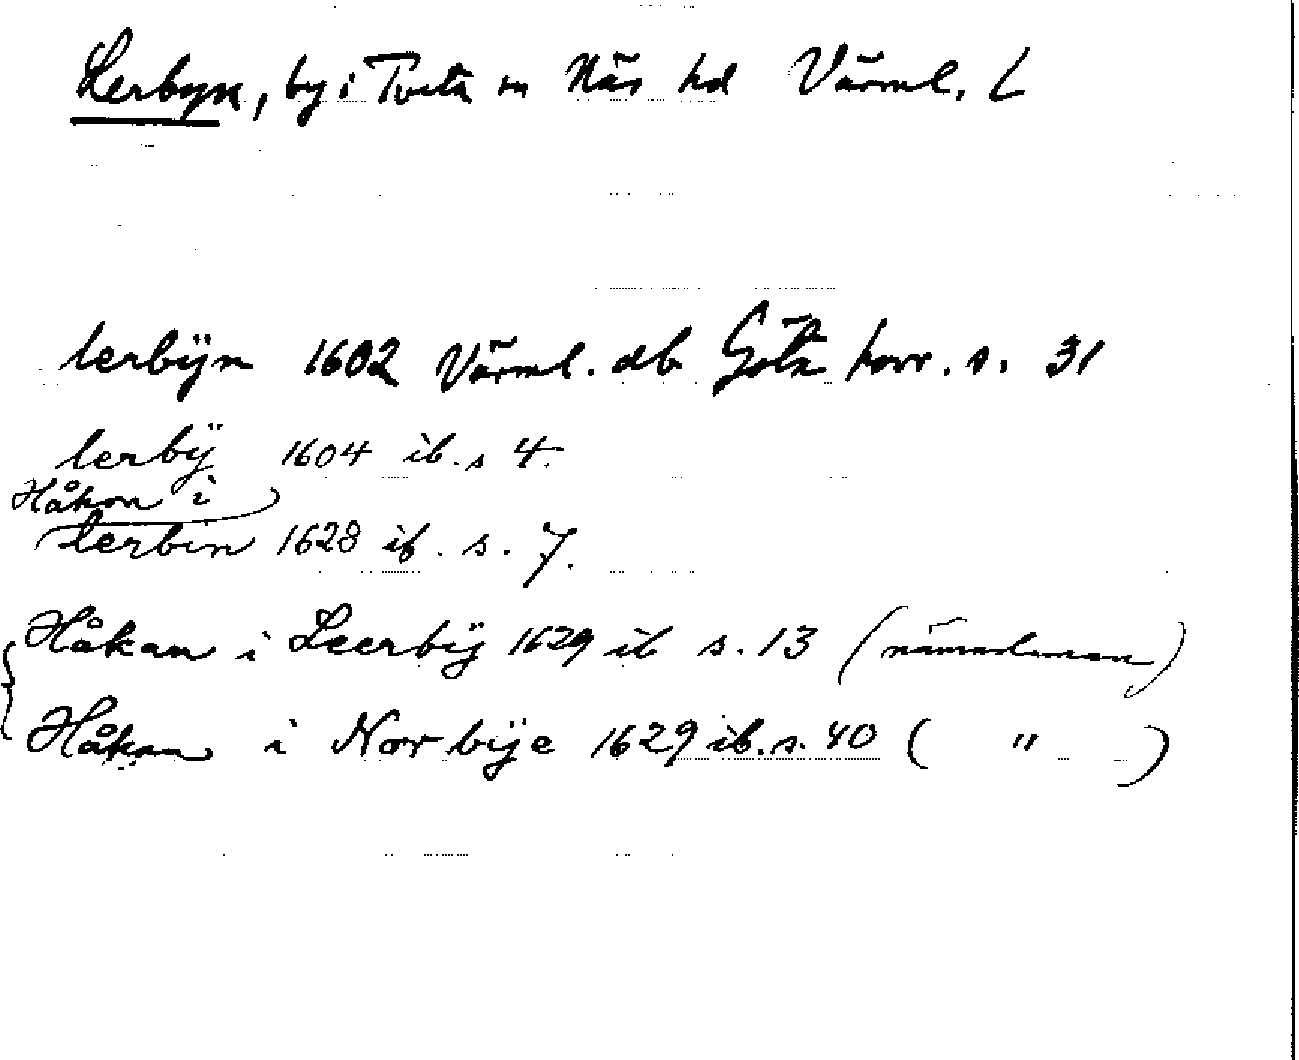 Lerbyn, by i Tveta sn Näs hd Värml. L
lerbÿn 1602 Värml. db Göta hovr. s. 31
lerbÿ 1604 ib. s 4.
Håkon i
Lerbin 1628 ib. s. 7.
Håkan i Leerbÿ 1629 ib s. 13 (nämndeman)
Håkan i Nor bÿe 1629 ib. s. 40 ( " )